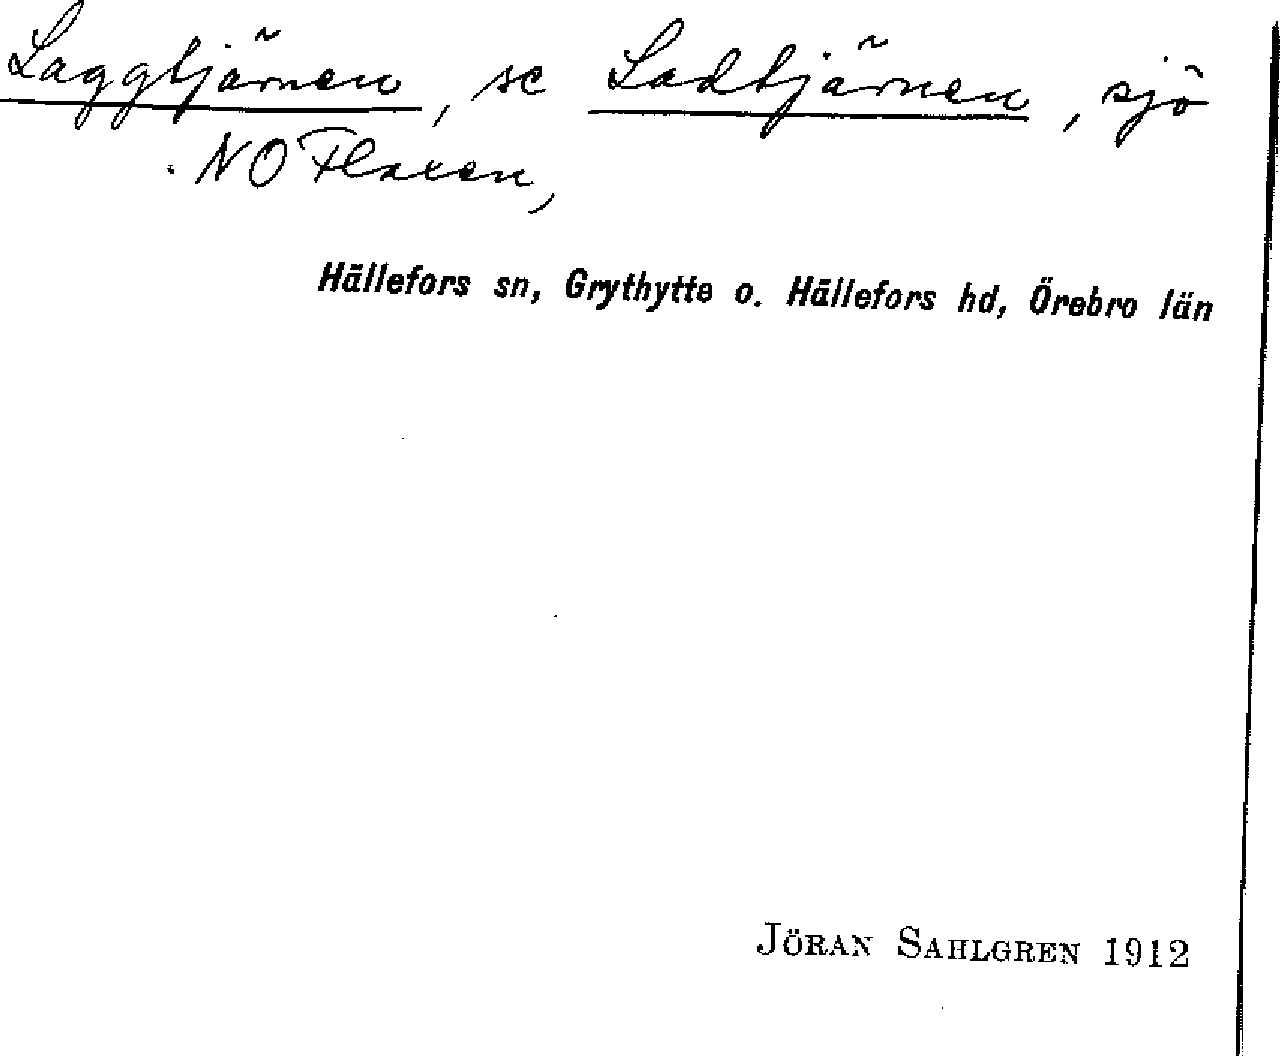 Laggtjärnen, se Ladtjärnen, sjö
NO Flaxen,
Hällefors sn, Grythytte o. Hällefors hd, Örebro län
JÖRAN SAHLGREN 1912